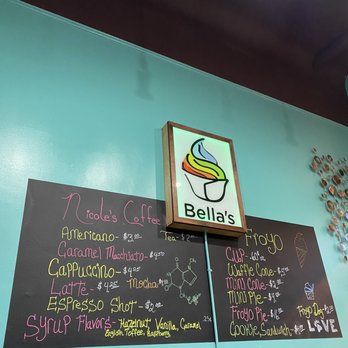 Nicole's Coffee
Americano - $3.00
Tea - $2
Caramel Macchiato - $4
Cappuccino - $4.00
Latte - $4.25
Mocha
Espresso Shot - $2.00
Syrup Flavors - Hazelnut, Vanilla, Caramel
English Toffee, Raspberry
Bella's
Froyo
Cup
Waffle Cone
Mini Cone
Mini Pie
Froyo Pie
Cookie Sandwich
Froyo Day
LOVE